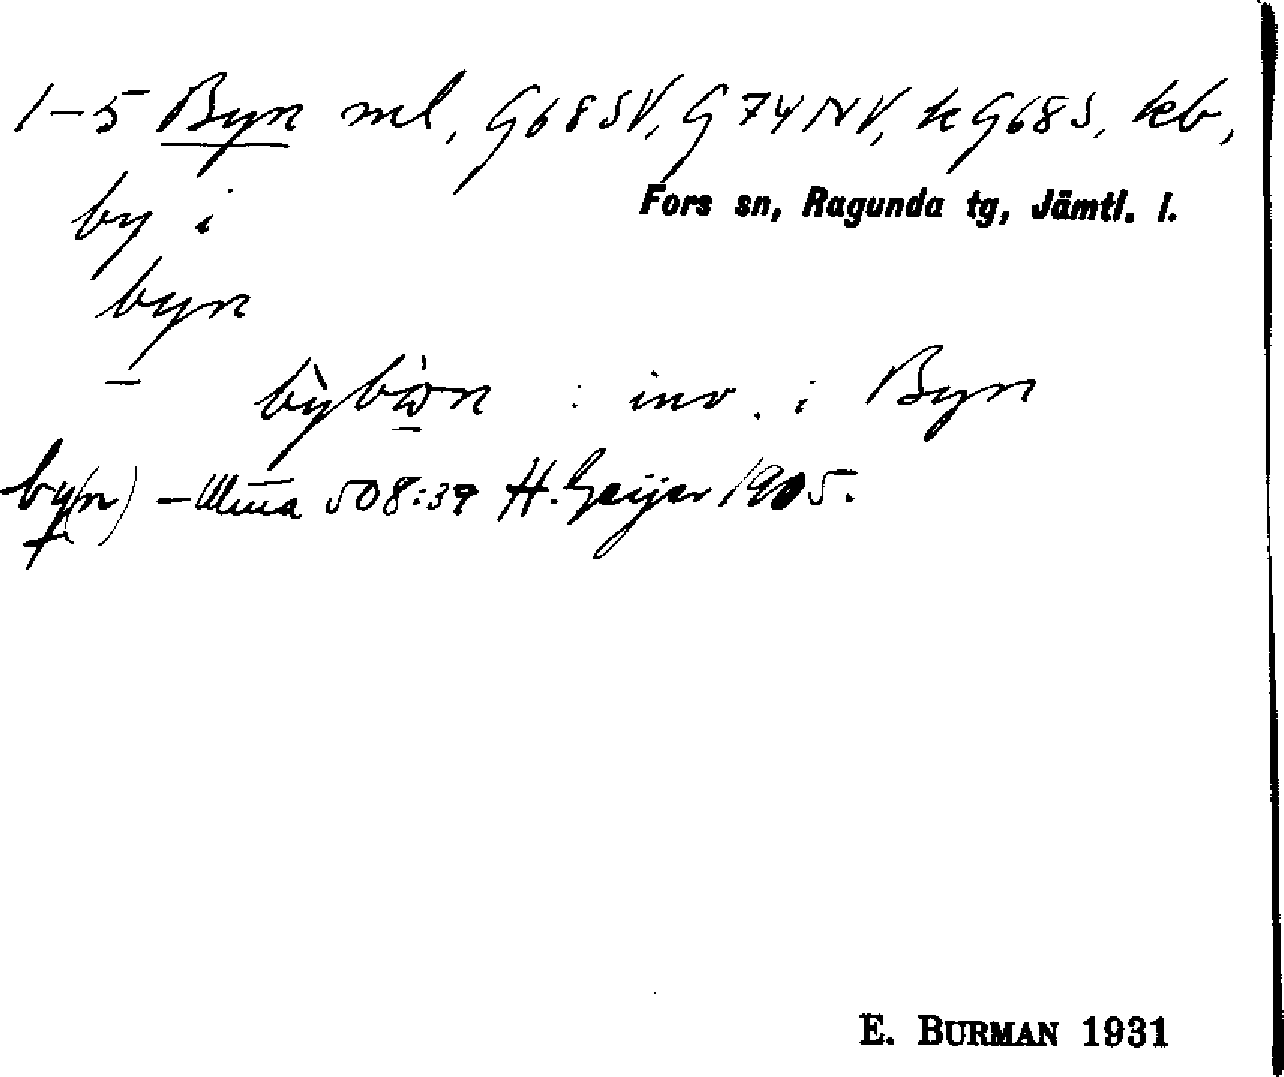 1-5 Byn ml, G68SV, G74NV, kG68S, kb,
by i Fors sn, Ragunda tg, Jämtl. l.
byn
: inv. i Byn
by(n) – 508:39 H. Geijer 1905.
E. BURMAN 1931